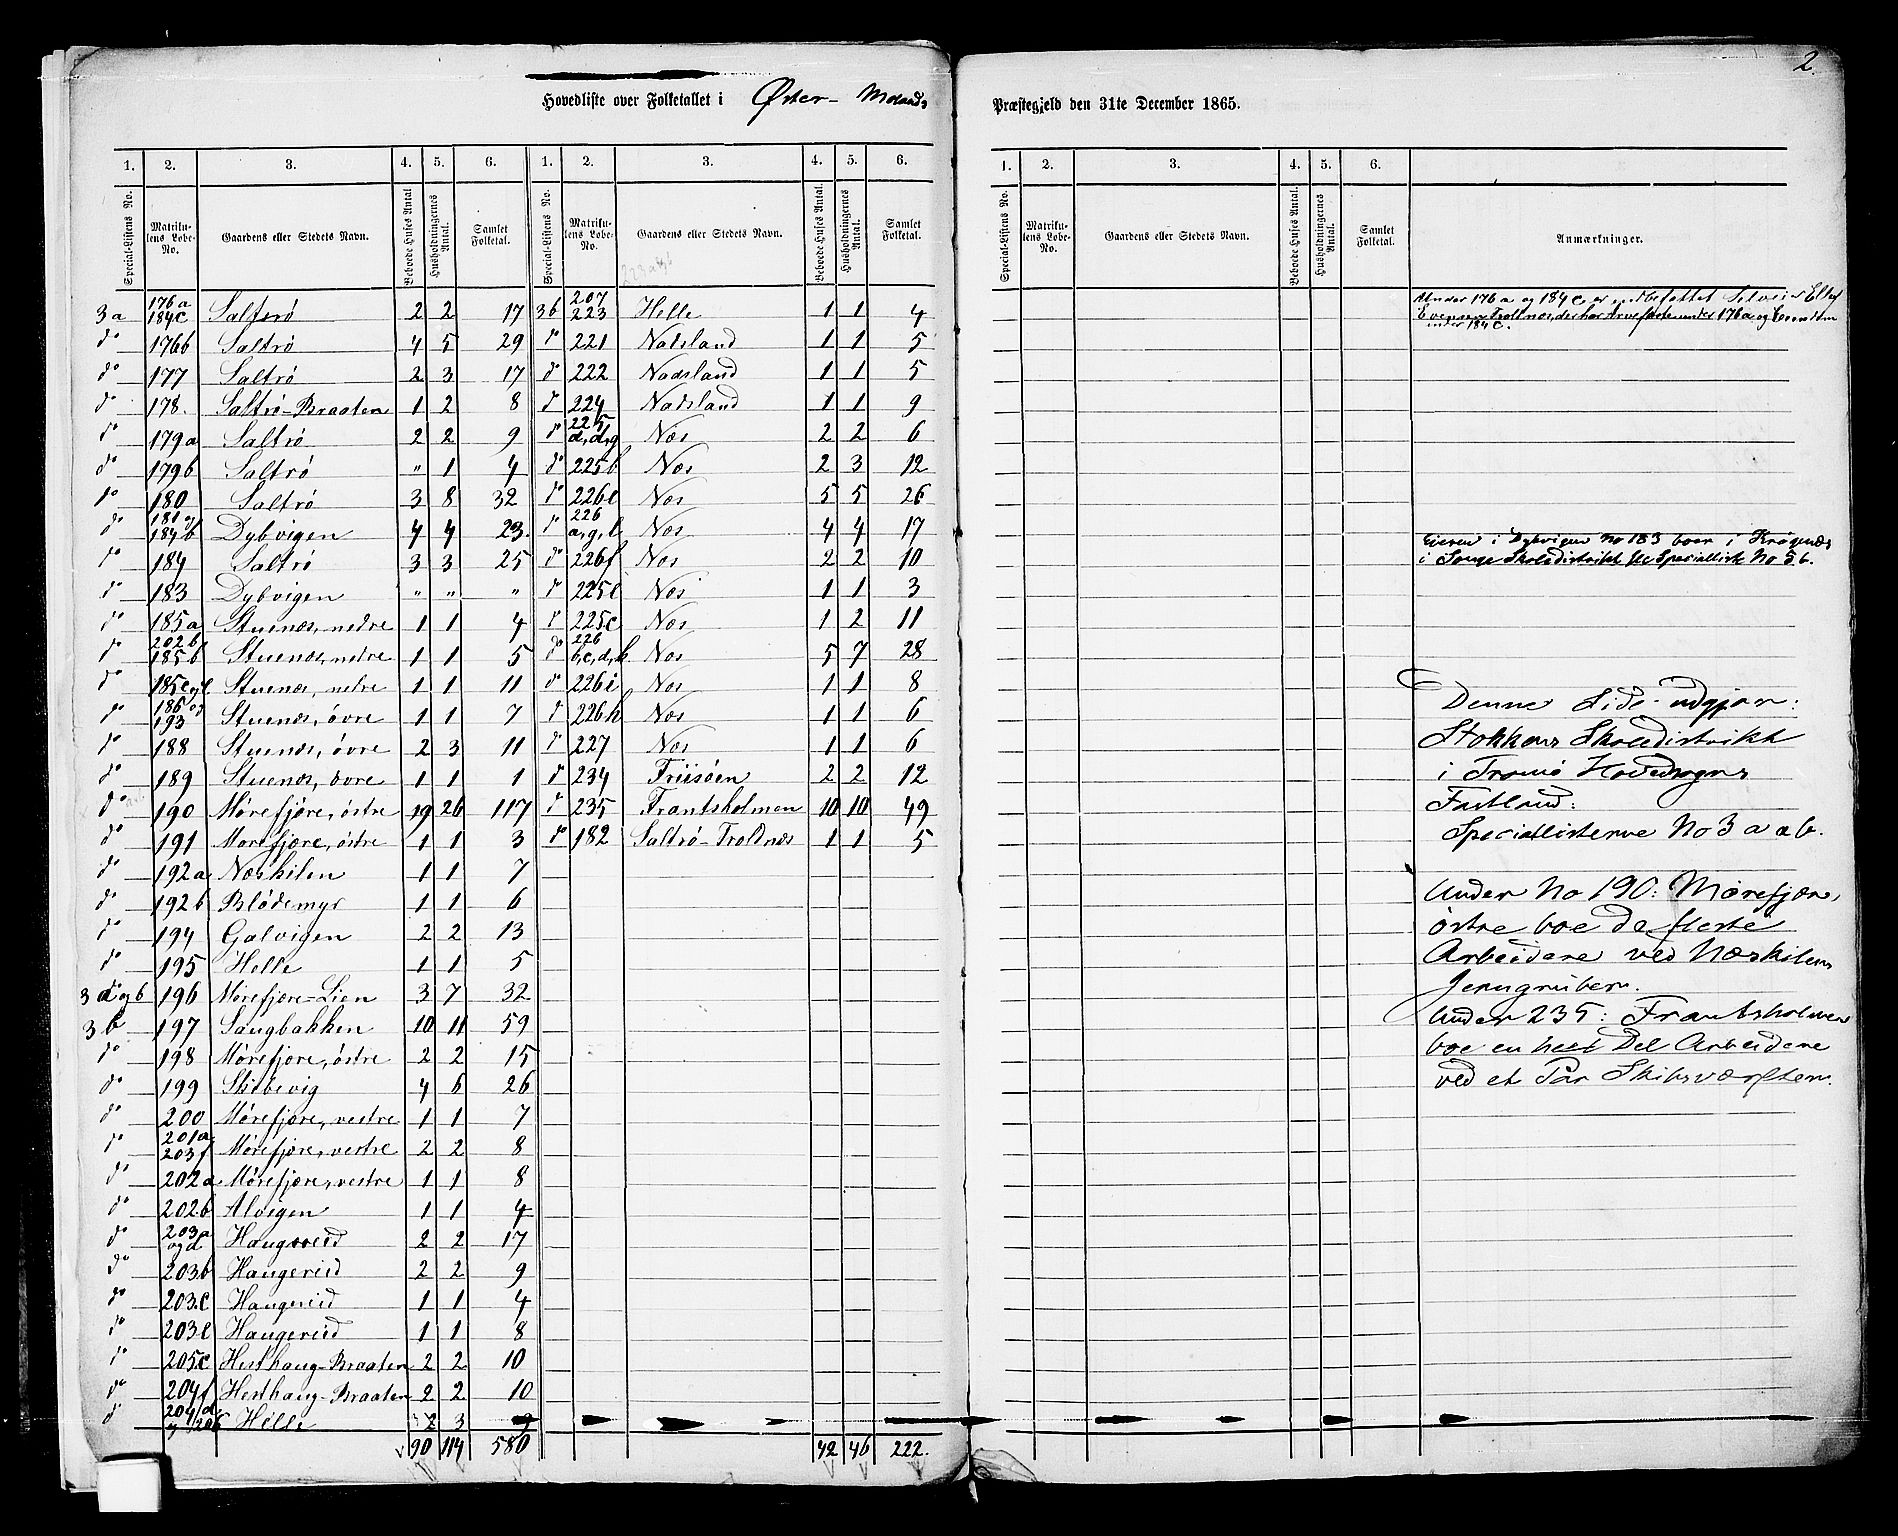 2.
Hovedliste over Folketallet i Øster- Molands Præstegjeld den 31te December 1865.
1. 2. 3. 4. 5. 6. 1. 2. 3. 4. 5. 6. 1. 2. 3. 4. 5. 6.
Special-Listens No. Matrikulens Løbe-No. Gaardens eller Stedets Navn. Beboede Huses Antal Husholdningernes Antal. Samlet Folketal. Special-Listens No. Matrikulens Løbe-No. Gaardens eller Stedets Navn. Beboede Huses Antal. Husholdningernes Antal. Samlet Folketal. Special-Listens No. Matrikulens Løbe-No. Gaardens eller Stedets Navn. Beboede Huses Antal. Husholdningernes Antal. Samlet Folketal. Anmærkninger.
3a 176a 184c Saltrø 2 2 17 3b 207 223 Helle 1 1 4
do 176b Saltrø 4 5 29 do 221 Nadsland 1 1 5
do 177 Saltrø 2 3 17 do 222 Nadsland 1 1 5
do 178. Saltrø-Braaten 1 2 8 do 224 Nadsland 1 1 9
do 179a Saltrø 2 2 9 do 225 d,d,g Næs 2 2 6
do 179b Saltrø „ 1 4 do 225b Næs 2 3 12
do 180 Saltrø 3 8 32 do 226e Næs 5 5 26
do 181 og 184b Dybvigen 4 4 23. do 226 a,g,l Næs 4 4 17
do 184 Saltrø 3 3 25 do 226f Næs 2 2 10
do 183 Dybvigen „ „ „ do 225e Næs 1 1 3
do 185a Stuenæs, nedre 1 1 4 do 225c Næs 1 2 11
do 202b 185b Stuenæs, nedre 1 1 5 do 226 b,c,d,k Næs 5 7 28
do 185c og e Stuenæs, nedre 1 1 11 do 226i Næs 1 1 8
do 186 og 193 Stuenæs, øvre 1 1 7 do 226h Næs 1 1 6
do 188 Stuenæs, øvre 2 3 11 do 227 Næs 1 1 6
do 189 Stuenæs, øvre 1 1 1 do 234 Friisøen 2 2 12
do 190 Mørefjære, østre 19 26 117 do 235 Frantsholmen 10 10 49
do 191 Mørefjære, østre 1 1 3 do 182 Saltrø-Troldnæs 1 1 5
do 192a Næskilen 1 1 7
do 192b Blødemyr 1 1 6
do 194 Galvigen 2 2 13
do 195 Helle 1 1 5
3a og b 196 Mørefjære-Lien 3 7 32
3b 197 Saugbakken 10 11 59
do 198 Mørefjære, østre 2 2 15
do 199 Skibevig 4 6 26
do 200 Mørefjære, vestre 1 1 7
do 201a 203f Mørefjære, vestre 2 2 8
do 202a Mørefjære, vestre 1 1 8
do 202b Alvigen 1 1 4
do 203a og d Haugereid 2 2 17
do 203b Haugereid 2 2 9
do 203c Haugereid 1 1 4
do 203e Haugereid 1 1 8
do 205c Hesthaug-Braaten 2 2 10
do 204f Hesthaug-Braaten 2 2 10
do 204d og 206 Helle 2 3
90 114 580 42 46 222.
Under 176a og 184c er indbefattet
Evensen Troldnæs, der har under 176a og
under 184c.
Eieren i Dybvigen No 183 boer i Krøgenæs
i Songe Skoledistrikt Specialliste No 5b.
Denne Side udgjør:
Stokkens Skoledistrikt
i Tromø Hovedsogns
Fastland:
Speciallisterne No 3 a & b.
Under No 190: Mørefjære,
østre boe de fleste
Arbeidere ved Næskilens
Jerngruber.
Under 235: Frantsholmen
boe en heel Del Arbeidere
ved et Par Skibsværfter.